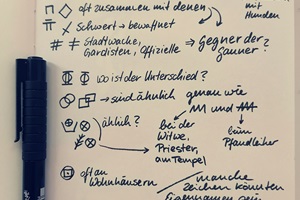 oft zusammen mit denen
mit Hunden
Schwert → bewaffnet
# # Stadtwache, Gardisten, Offizielle ⇒ Gegner der Gauner?
wo ist der Unterschied?
→ sind ähnlich genau wie
ähnlich?
bei der Witwe, Priester, am Tempel
beim Pfandleiher
oft an Wohnhäusern
manche zeichen könnten
Eigennamen sein